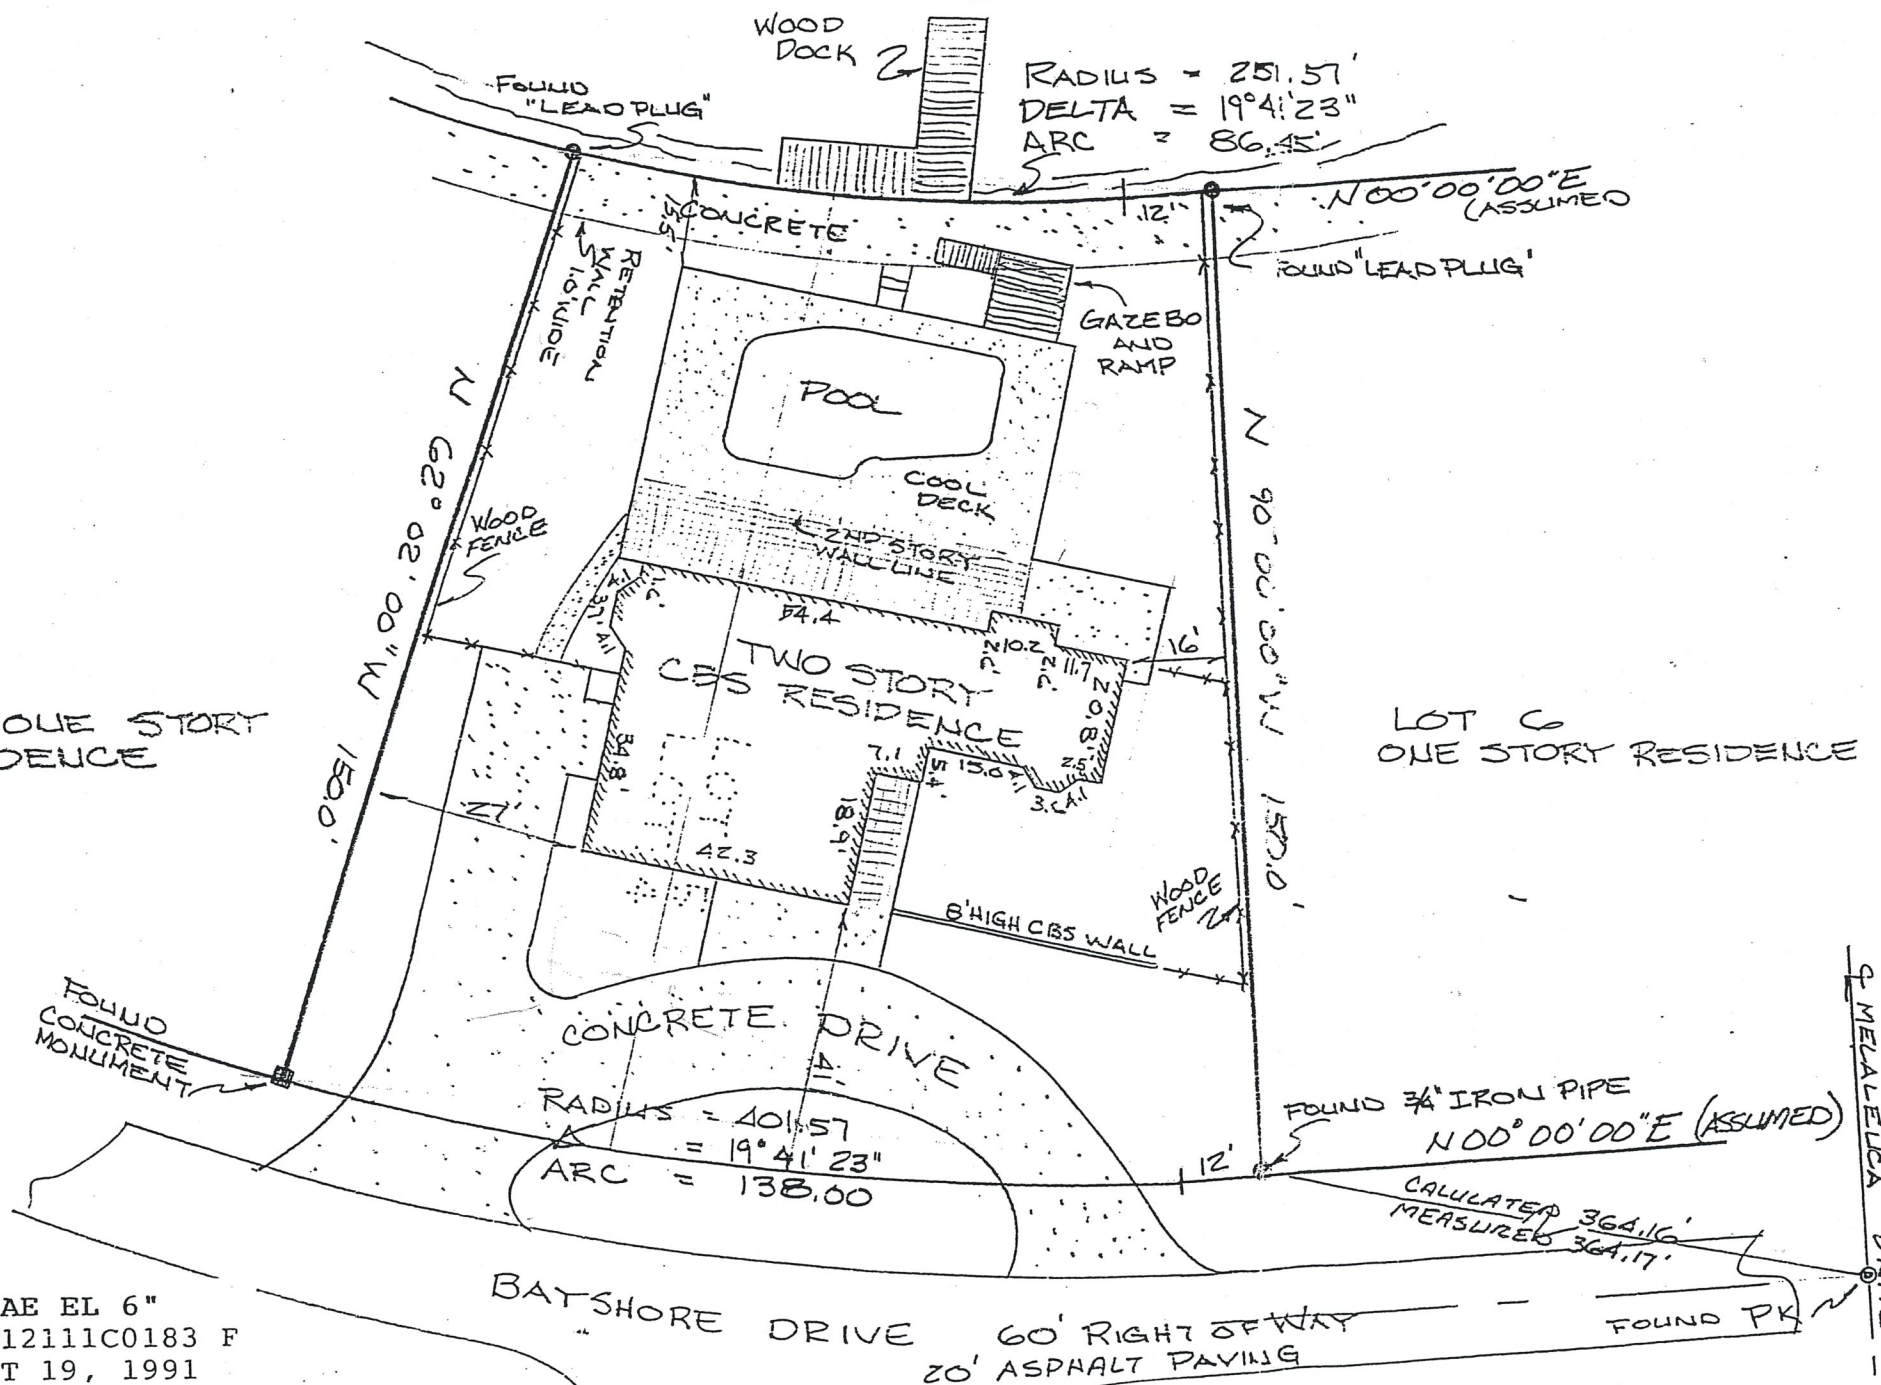 WOOD
DOCK
RADIUS = 251.57'
DELTA = 19°41'23"
ARC = 86.45'
FOUND
"LEAD PLUG"
N 00°00'00"E
(ASSUMED
FOUND "LEAD PLUG"
12'
15.5'
CONCRETE
RETENTION
WALL
1.0' WIDE
GAZEBO
AND
RAMP
POOL
COOL
DECK
2ND STORY
WALL LINE
WOOD
FENCE
N 62° 02' 00" W 150.0'
N 90° 00' 00" W 150.0'
54.4
10.2
2.6'
2.6'
11.7
16'
TWO STORY
CBS RESIDENCE
20.8'
7.1
5.4'
15.0
2.5
3.6
4.1
34.8'
18.9'
42.3
27'
ONE STORY
DENCE
LOT 6
ONE STORY RESIDENCE
WOOD
FENCE
8' HIGH CBS WALL
FOUND
CONCRETE
MONUMENT
CONCRETE DRIVE
41'
RADIUS = 401.57
Δ = 19° 41' 23"
ARC = 138.00
12'
FOUND 3/4" IRON PIPE
N 00° 00' 00" E (ASSUMED)
CALULATED 364.16'
MEASURED 364.17'
℄ MELALELICA
FOUND PK
BAYSHORE DRIVE 60' RIGHT OF WAY
20' ASPHALT PAVING
AE EL 6"
12111C0183 F
T 19, 1991